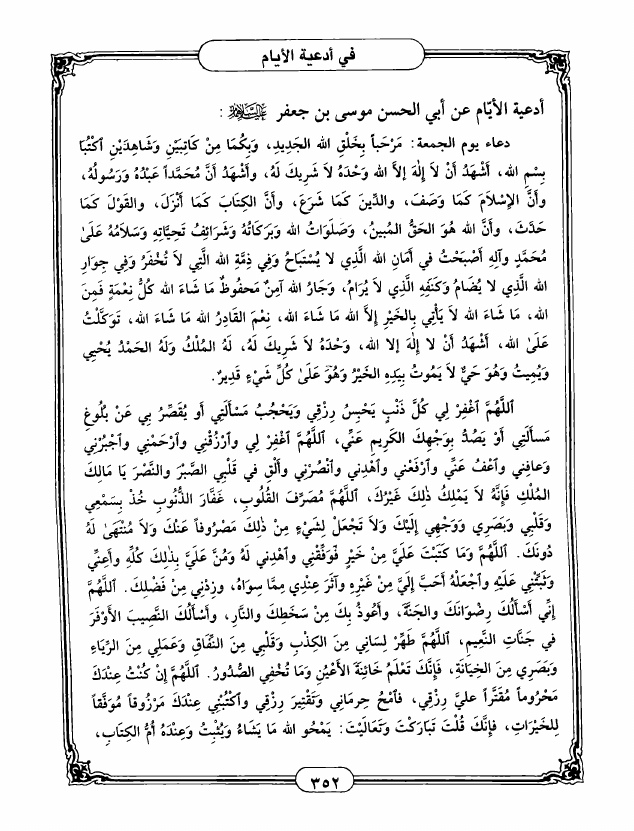 في أدعية الأيام
أدعية الأيّام عن أبي الحسن موسى بن جعفر عليه السلام :
دعاء يوم الجمعة: مَرْحَباً بِخَلْقِ الله الجَدِيدِ، وَبِكُمَا مِنْ كَاتِبَيْنِ وَشَاهِدَيْنِ ٱكْتُبَا
بِسْمِ الله، أَشْهَدُ أَنْ لاَ إِلٰهَ إلاَّ الله وَحْدَهُ لاَ شَرِيكَ لَهُ، وَأَشْهَدُ أَنَّ مُحَمَّداً عَبْدُهُ وَرَسُولُهُ،
وَأَنَّ الإِسْلاَمَ كَمَا وَصَفَ، والدِّينَ كَمَا شَرَعَ، وَأَنَّ الكِتَابَ كَمَا أَنْزَلَ، والقَوْلَ كَمَا
حَدَّثَ، وَأَنَّ الله هُوَ الحَقُّ المُبِينُ، وَصَلَوَاتُ الله وَبَرَكَاتُهُ وَشَرَائِفُ تَحِيَّاتِهِ وَسَلاَمُهُ عَلَىٰ
مُحَمَّدٍ وَآلِهِ أَصْبَحْتُ في أَمَانِ الله الَّذِي لا يُسْتَبَاحُ وَفِي ذِمَّةِ الله الَّتِي لاَ تُخْفَرُ وَفِي جِوَارِ
الله الَّذِي لا يُضَامُ وَكَنَفِهِ الَّذِي لاَ يُرَامُ، وَجَارُ الله آمِنٌ مَحفُوظٌ مَا شَاءَ الله كُلُّ نِعْمَةٍ فَمِنَ
الله، مَا شَاءَ الله لاَ يَأْتِي بِالخَيْرِ إِلاَّ الله مَا شَاءَ الله، نِعْمَ القَادِرُ الله مَا شَاءَ الله، تَوَكَّلْتُ
عَلَىٰ الله، أَشْهَدُ أَنْ لا إِلٰهَ إلا الله، وَحْدَهُ لاَ شَرِيكَ لَهُ، لَهُ المُلْكُ وَلَهُ الحَمْدُ يُحْيِي
وَيُمِيتُ وَهُوَ حَيٌّ لاَ يَمُوتُ بِيَدِهِ الخَيْرُ وَهُوَ عَلَىٰ كُلِّ شَيْءٍ قَدِيرٌ.
اَللَّهُمَّ ٱغْفِرْ لِي كُلَّ ذَنْبٍ يَحْبِسُ رِزْقِي وَيَحْجُبُ مَسْأَلَتِي أَو يُقَصِّرُ بِي عَنْ بُلُوغِ
مَسأَلَتِي أَوْ يَصُدُّ بِوَجْهِكَ الكَرِيمِ عَنِّي، اَللَّهُمَّ ٱغْفِرْ لِي وٱرْزُقْنِي وٱرْحَمْنِي وٱجْبُرْنِي
وَعَافِنِي وٱعْفُ عَنِّي وٱرْفَعْنِي وٱهْدِنِي وٱنْصُرْنِي وأَلْقِ في قَلْبِي الصَّبْرَ والنَّصْرَ يَا مَالِكَ
المُلْكِ فَإِنَّهُ لاَ يَمْلِكُ ذٰلِكَ غَيْرُكَ، اَللَّهُمَّ مُصَرِّفَ القُلُوبِ، غَفَّارَ الذُّنُوبِ خُذْ بِسَمْعِي
وَقَلْبِي وَبَصَرِي وَوَجْهِي إِلَيْكَ وَلاَ تَجْعَلْ لِشَيْءٍ مِنْ ذٰلِكَ مَصْرُوفاً عَنْكَ وَلاَ مُنْتَهَىٰ لَهُ
دُونَكَ. اَللَّهُمَّ وَمَا كَتَبْتَ عَلَيَّ مِنْ خَيْرٍ فَوَفِّقْنِي وٱهْدِنِي لَهُ وَمُنَّ عَلَيَّ بِذٰلِكَ كُلِّهِ وأَعِنِّي
وَثَبِّتْنِي عَلَيْهِ وٱجْعَلْهُ أَحَبَّ إِلَيَّ مِنْ غَيْرِهِ وآثَرَ عِنْدِي مِمَّا سِوَاهُ، وزِدْنِي مِنْ فَضْلِكَ. اَللَّهُمَّ
إِنِّي أَسْأَلُكَ رِضْوَانَكَ والجَنَّةَ، وَأَعُوذُ بِكَ مِنْ سَخَطِكَ والنَّارِ، وأَسْأَلُكَ النَّصِيبَ الأَوْفَرَ
في جَنَّاتِ النَّعِيمِ، اَللَّهُمَّ طَهِّرْ لِسَانِي مِنَ الكِذْبِ وَقَلْبِي مِنَ النِّفَاقِ وَعَمَلِي مِنَ الرِّيَاءِ
وَبَصَرِي مِنَ الخِيَانَةِ، فَإِنَّكَ تَعْلَمُ خَائِنَةَ الأَعْيُنِ وَمَا تُخْفِي الصُّدُورُ. اَللَّهُمَّ إِنْ كُنْتُ عِنْدَكَ
مَحْرُوماً مُقَتَّراً عليَّ رِزْقِي، فٱمْحُ حِرمَانِي وَتَقْتِيرَ رِزْقِي وٱكْتُبْنِي عِنْدَكَ مَرْزُوقاً مُوَفَّقاً
لِلخَيْرَاتِ، فَإِنَّكَ قُلْتَ تَبَارَكْتَ وَتَعَالَيْتَ: يَمْحُو الله مَا يَشَاءُ وَيُثْبِتُ وَعِنْدَهُ أُمُّ الكِتَابِ،
٣٥٢